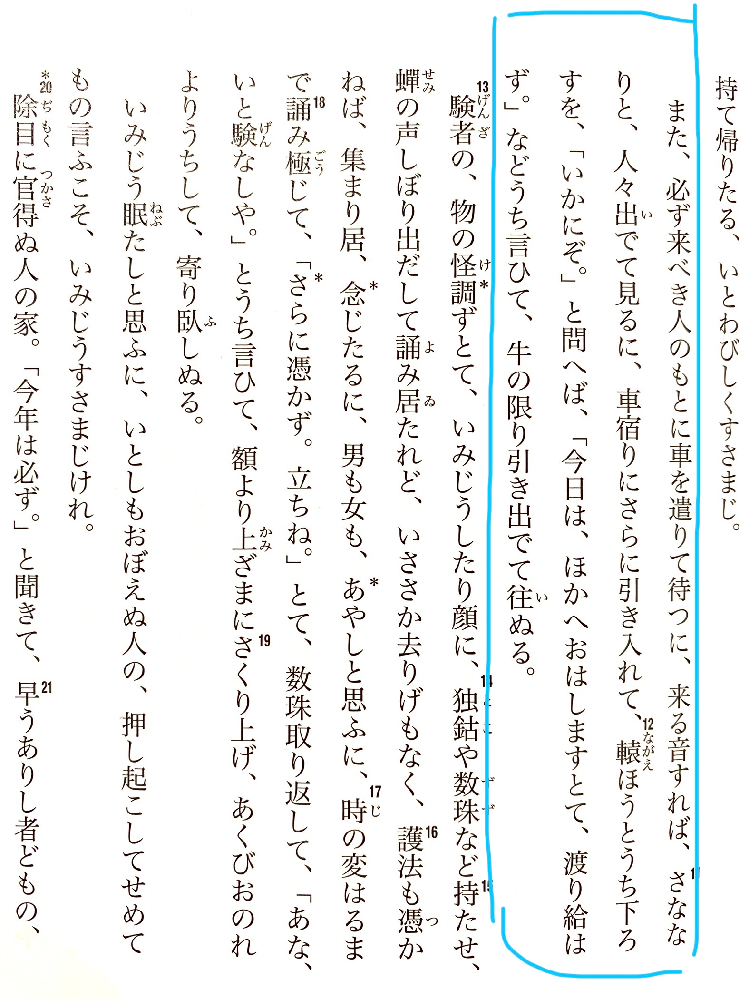 持て帰りたる、いとわびしくすさまじ。
また、必ず来べき人のもとに車を遣りて待つに、来る音すれば、さなな
りと、人々出でて見るに、車宿りにさらに引き入れて、轅ほうとうち下ろ
すを、「いかにぞ。」と問へば、「今日は、ほかへおはしますとて、渡り給は
ず。」などうち言ひて、牛の限り引き出でて往ぬる。
験者の、物の怪調ずとて、いみじうしたり顔に、独鈷や数珠など持たせ、
蟬の声しぼり出だして誦み居たれど、いささか去りげもなく、護法も憑か
ねば、集まり居、念じたるに、男も女も、あやしと思ふに、時の変はるま
で誦み極じて、「さらに憑かず。立ちね。」とて、数珠取り返して、「あな、
いと験なしや。」とうち言ひて、額より上ざまにさくり上げ、あくびおのれ
よりうちして、寄り臥しぬる。
いみじう眠たしと思ふに、いとしもおぼえぬ人の、押し起こしてせめて
もの言ふこそ、いみじうすさまじけれ。
除目に官得ぬ人の家。「今年は必ず。」と聞きて、早うありし者どもの、